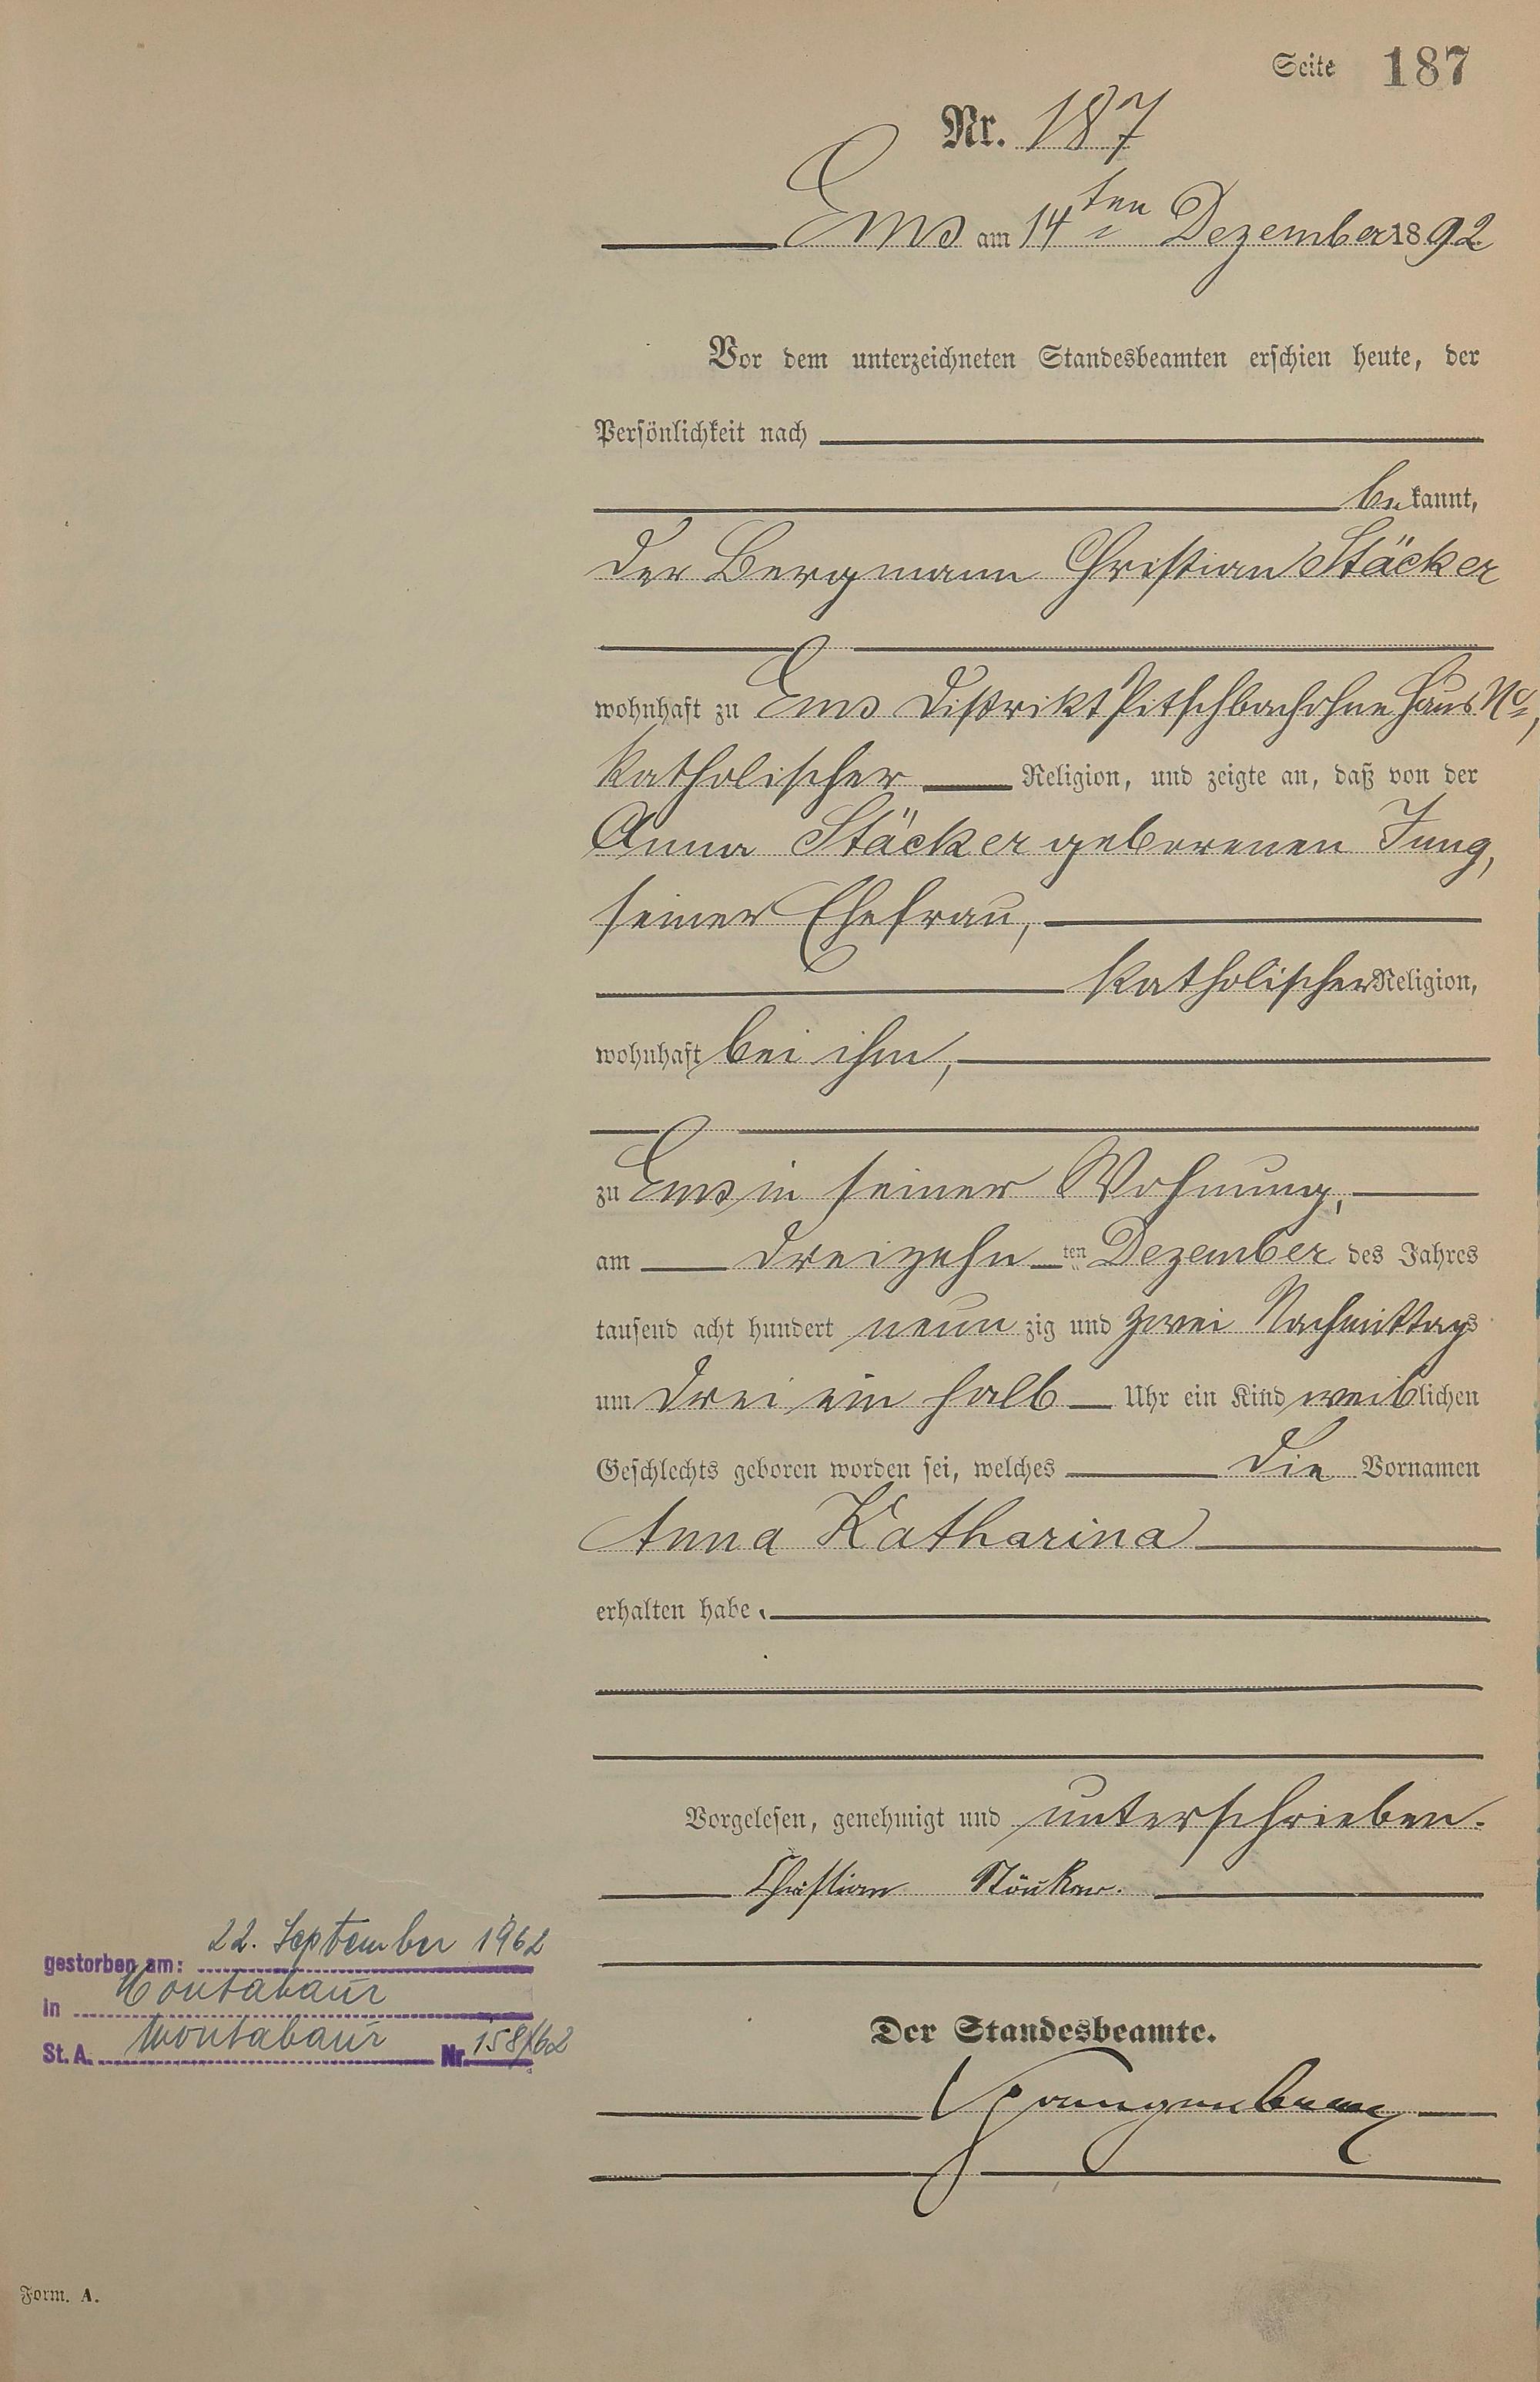 Seite 187
Nr. 187
Ems am 14ten Dezember 1892
Vor dem unterzeichneten Standesbeamten erschien heute, der
Persönlichkeit nach
bekannt,
der Bergmann Christian Stäcker
wohnhaft zu Ems Distrikt Pitschbach ohne Haus No,
katholischer Religion, und zeigte an, daß von der
Anna Stäcker geborenen Jung,
seiner Ehefrau,
katholischer Religion,
wohnhaft bei ihm,
zu Ems in seiner Wohnung,
am dreizehn ten Dezember des Jahres
tausend acht hundert neun zig und zwei Nachmittags
um drei ein halb Uhr ein Kind weiblichen
Geschlechts geboren worden sei, welches die Vornamen
Anna Katharina
erhalten habe.
Vorgelesen, genehmigt und unterschrieben.
Christian
gestorben am: 22. September 1962
in Montabaur
St. A. Montabaur Nr. 158/62
Der Standesbeamte.
Form. A.